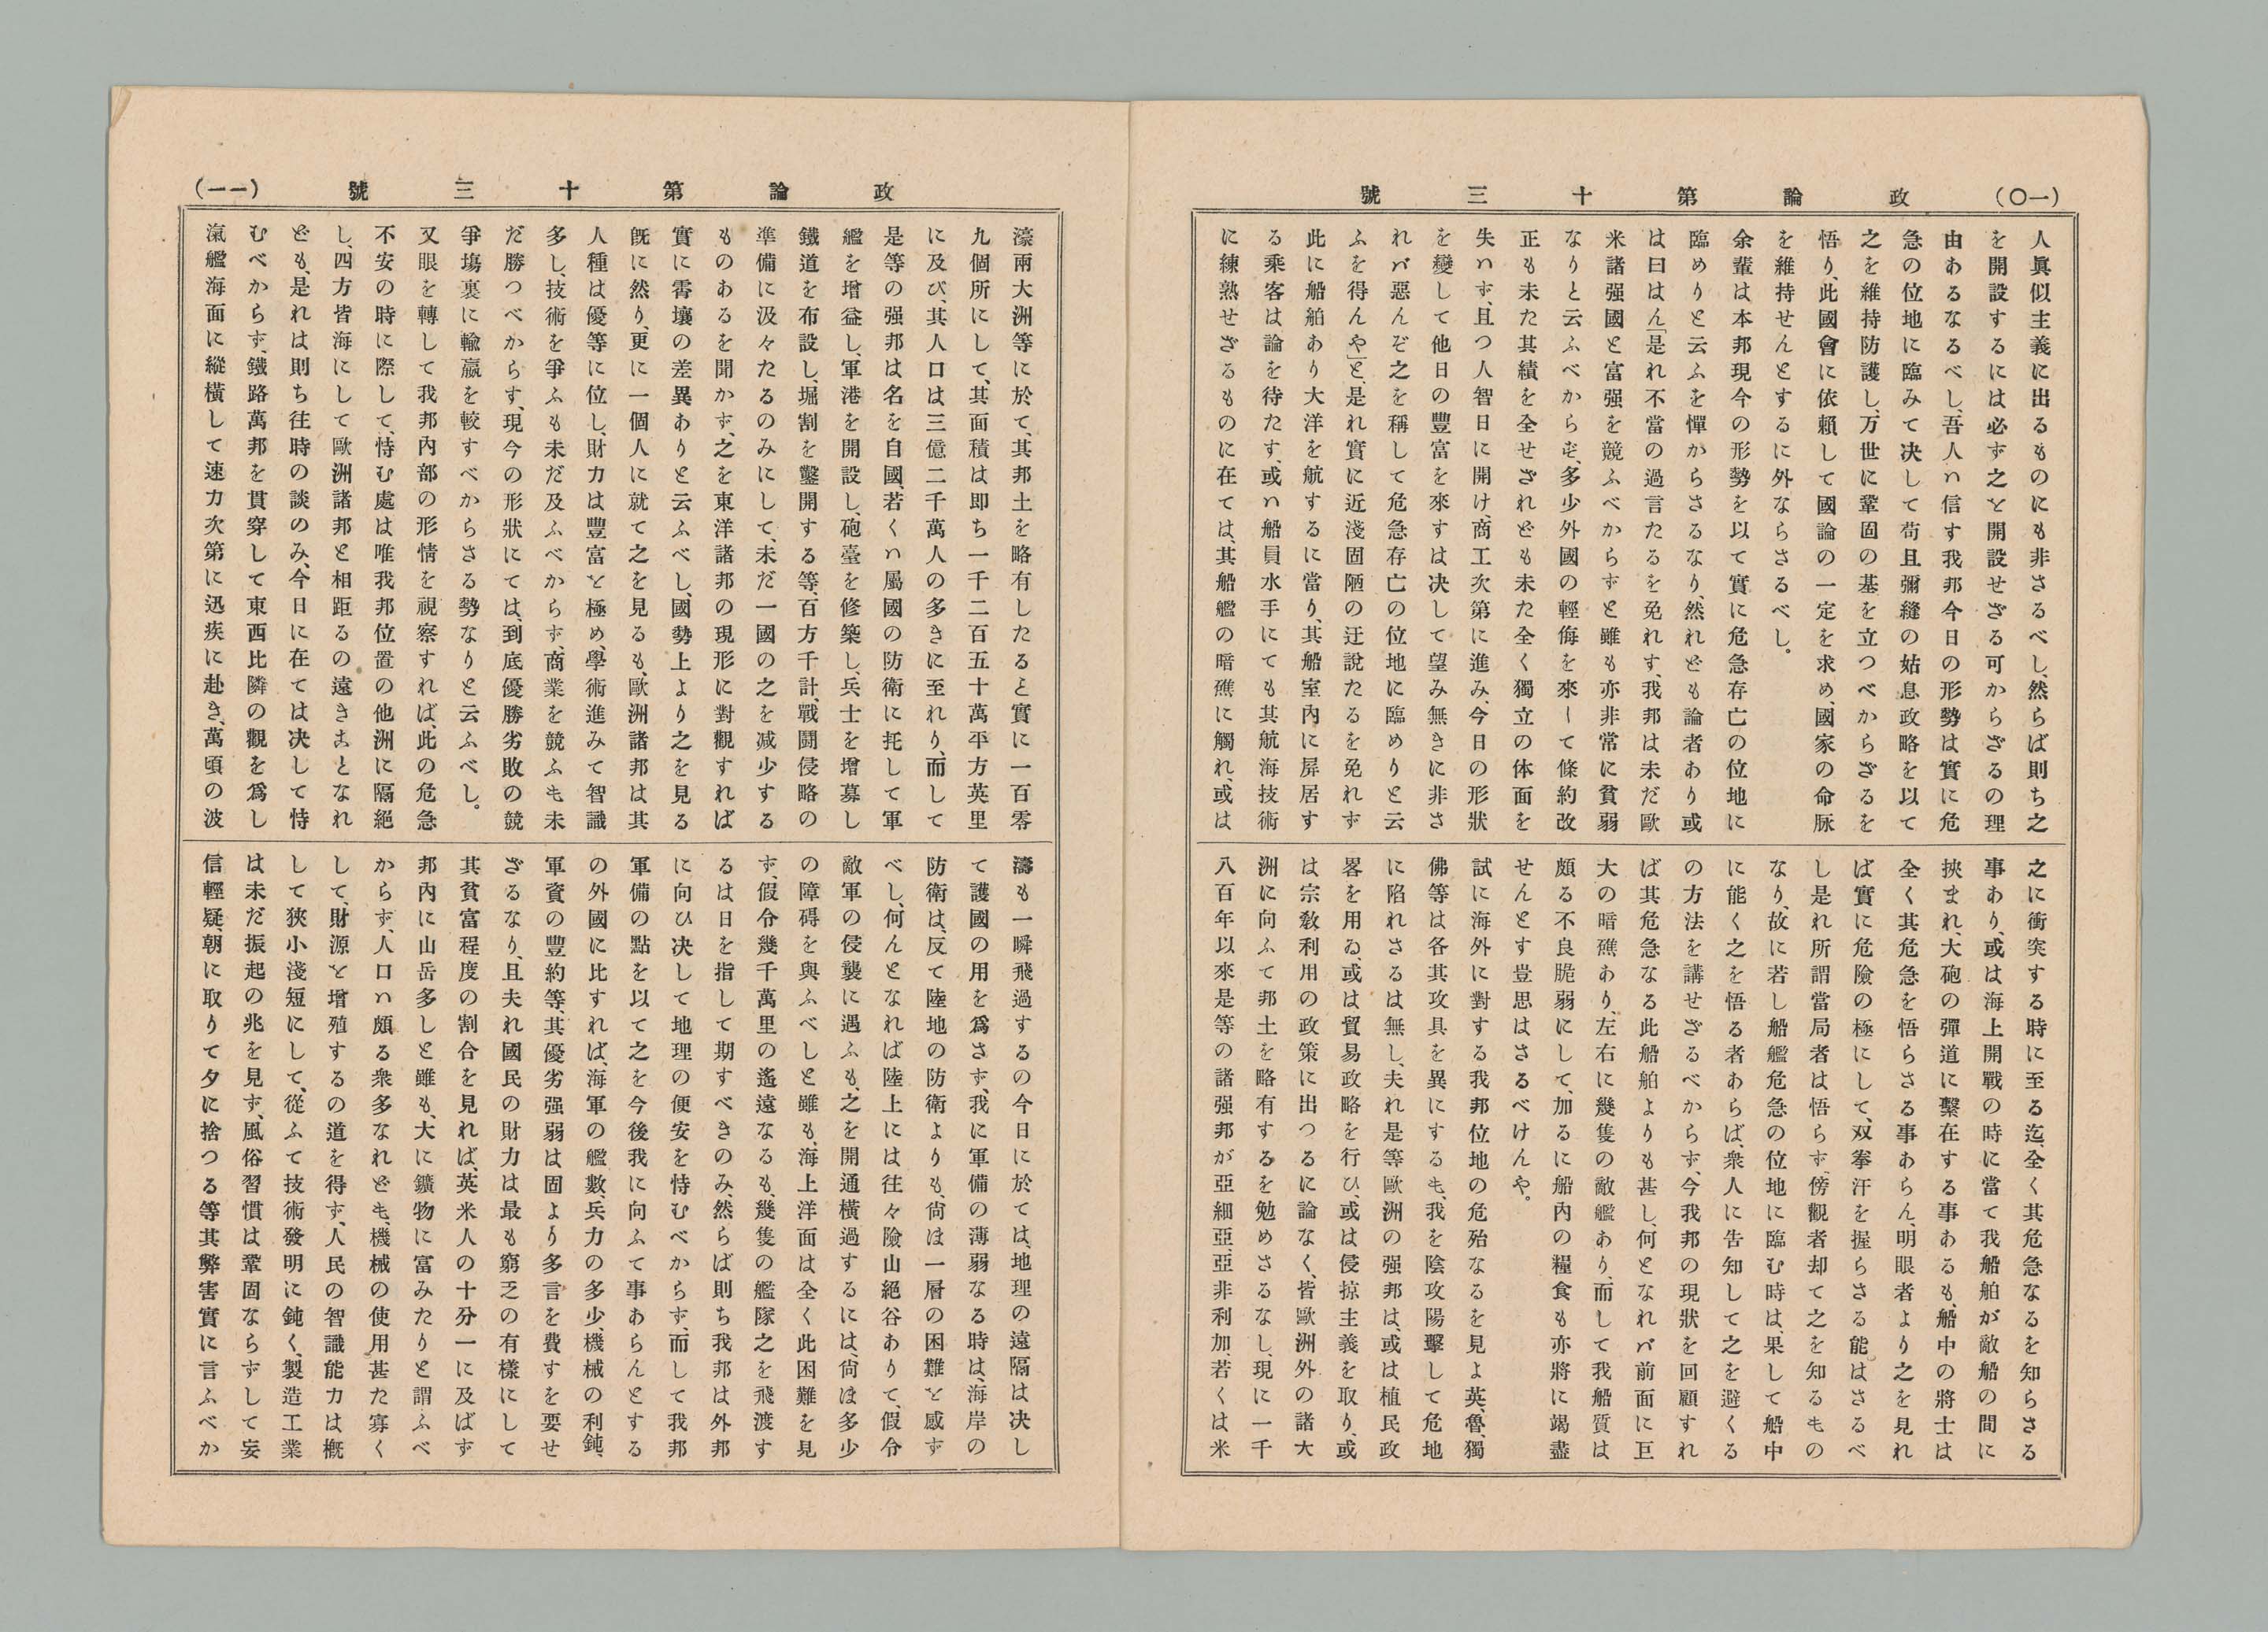 政論第十三號
(一〇)
人眞似主義に出るものにも非さるべし、然らば則ち之
を開設するには必ず之を開設せざる可からざるの理
由あるなるべし、吾人ハ信す我邦今日の形勢は實に危
急の位地に臨みて决して苟且彌縫の姑息政略を以て
之を維持防護し、万世に鞏固の基を立つべからざるを
悟り、此國會に依賴して國論の一定を求め、國家の命脈
を維持せんとするに外ならさるべし。
余輩は本邦現今の形勢を以て實に危急存亡の位地に
臨めりと云ふを憚からさるなり、然れども論者あり或
は曰はん「是れ不當の過言たるを免れす、我邦は未だ歐
米諸强國と富强を競ふべからずと雖も亦非常に貧弱
なりと云ふべからず、多少外國の輕侮を來して條約改
正も未た其績を全せざれども未た全く獨立の体面を
失ハず、且つ人智日に開け、商工次第に進み、今日の形狀
を變して他日の豐富を來すは决して望み無きに非さ
れバ惡んぞ之を稱して危急存亡の位地に臨めりと云
ふを得んや」と、是れ實に近淺固陋の迂說たるを免れず
此に船舶あり大洋を航するに當り、其船室內に屏居す
る乘客は論を待たす、或ハ船員水手にても其航海技術
に練熟せざるものに在ては、其船艦の暗礁に觸れ、或は
之に衝突する時に至る迄、全く其危急なるを知らさる
事あり、或は海上開戰の時に當て我船舶が敵船の間に
挾まれ、大砲の彈道に繫在する事あるも、船中の將士は
全く其危急を悟らさる事あらん、明眼者より之を見れ
ば實に危險の極にして、双拳汗を握らさる能はさるべ
し是れ所謂當局者は悟らず、傍觀者却て之を知るもの
なり、故に若し船艦危急の位地に臨む時は、果して船中
に能く之を悟る者あらば、衆人に告知して之を避くる
の方法を講せざるべからず、今我邦の現狀を回顧すれ
ば其危急なる此船舶よりも甚し、何となれバ前面に巨
大の暗礁あり、左右に幾隻の敵艦あり、而して我船質は
頗る不良脆弱にして、加るに船內の糧食も亦將に竭盡
せんとす豈思はさるべけんや。
試に海外に對する我邦位地の危殆なるを見よ英、魯、獨
佛等は各其攻具を異にするも、我を陰攻陽擊して危地
に陷れさるは無し、夫れ是等歐洲の强邦は、或は植民政
畧を用ゐ、或は貿易政略を行ひ、或は侵掠主義を取り、或
は宗敎利用の政策に出つるに論なく、皆歐洲外の諸大
洲に向ふて邦土を略有するを勉めさるなし、現に一千
八百年以來是等の諸强邦が亞細亞、亞非利加、若くは米
政論第十三號
(一一)
濠兩大洲等に於て、其邦土を略有したると實に一百零
九個所にして、其面積は即ち一千二百五十萬平方英里
に及び、其人口は三億二千萬人の多きに至れり、而して
是等の强邦は名を自國、若くハ屬國の防衛に托して軍
艦を增益し、軍港を開設し、砲臺を修築し、兵士を增募し
鐵道を布設し、堀割を鑿開する等、百方千計、戰鬪侵略の
準備に汲々たるのみにして、未だ一國の之を减少する
ものあるを聞かず、之を東洋諸邦の現形に對觀すれば
實に霄壤の差異ありと云ふべし、國勢上より之を見る
旣に然り、更に一個人に就て之を見るも、歐洲諸邦は其
人種は優等に位し、財力は豐富を極め、學術進みて智識
多し、技術を爭ふも未だ及ふべからず、商業を競ふも未
だ勝つべからす、現今の形狀にては、到底優勝劣敗の競
爭塲裏に輸贏を較すべからさる勢なりと云ふべし。
又眼を轉して我邦內部の形情を視察すれば、此の危急
不安の時に際して、恃む處は唯我邦位置の他洲に隔絕
し、四方皆海にして歐洲諸邦と相距るの遠きことなれ
ども、是れは則ち往時の談のみ、今日に在ては决して恃
むべからず、鐵路萬邦を貫穿して東西比隣の觀を爲し
滊艦海面に縱橫して速力次第に迅疾に赴き、萬頃の波
濤も一瞬飛過するの今日に於ては、地理の遠隔は决し
て護國の用を爲さず、我に軍備の薄弱なる時は、海岸の
防衛は、反て陸地の防衛よりも、尙ほ一層の困難を感ず
べし、何んとなれば陸上には往々險山絕谷ありて、假令
敵軍の侵襲に遇ふも、之を開通橫過するには、尙ほ多少
の障碍を與ふべしと雖も、海上洋面は全く此困難を見
ず、假令幾千萬里の遙遠なるも、幾隻の艦隊之を飛渡す
るは日を指して期すべきのみ、然らば則ち我邦は外邦
に向ひ决して地理の便安を恃むべからず、而して我邦
軍備の點を以て之を今後我に向ふて事あらんとする
の外國に比すれば、海軍の艦數、兵力の多少、機械の利鈍、
軍資の豐約等、其優劣强弱は固より多言を費すを要せ
ざるなり、且夫れ國民の財力は最も窮乏の有樣にして
其貧富程度の割合を見れば、英米人の十分一に及ばず
邦內に山岳多しと雖も、大に鑛物に富みたりと謂ふべ
からず、人口ハ頗る衆多なれども、機械の使用甚た寡く
して、財源を增殖するの道を得ず、人民の智識能力は槪
して狹小淺短にして、從ふて技術發明に鈍く、製造工業
は未だ振起の兆を見ず、風俗習慣は鞏固ならずして妄
信輕疑、朝に取りて夕に捨つる等其弊害實に言ふべか